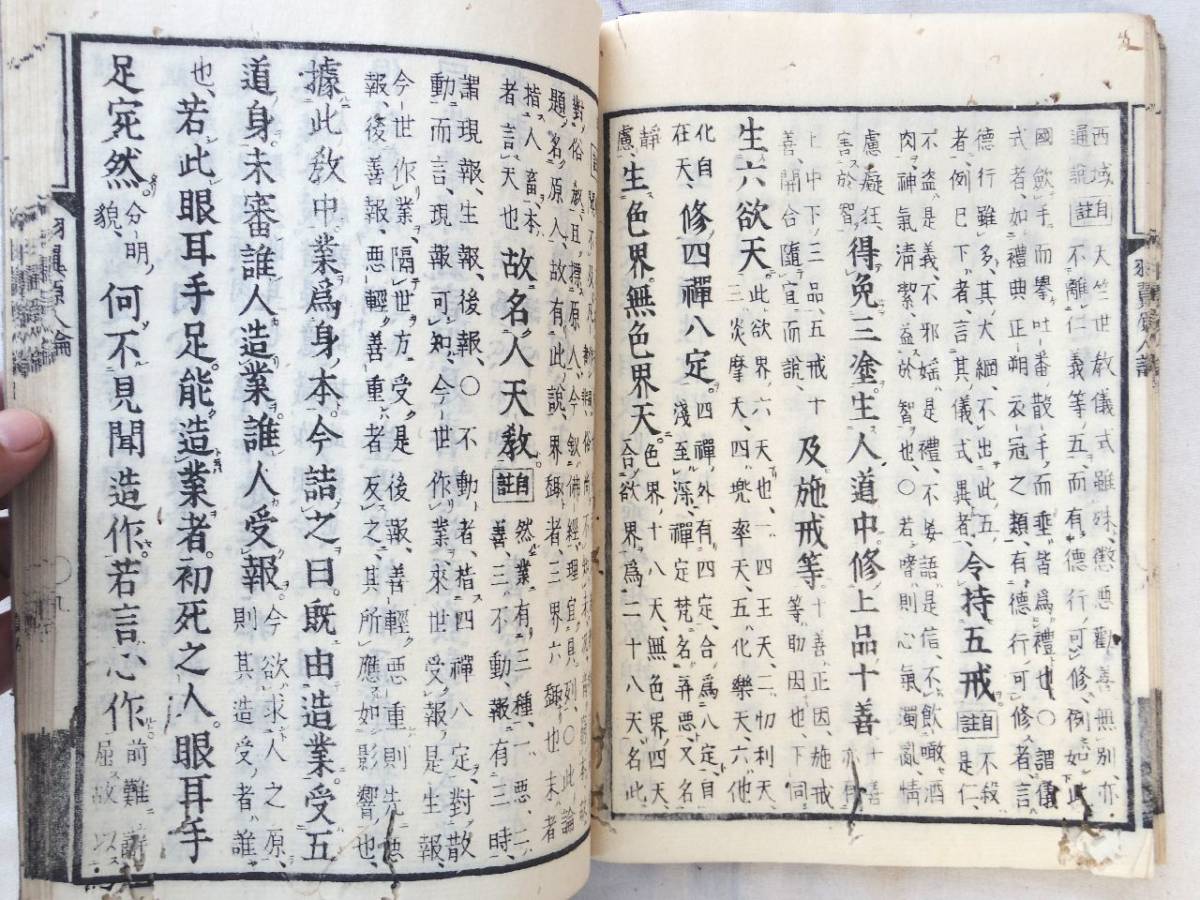 西域自大竺世教儀式雖殊懲惡勸善無別亦
通說註不離仁義等五而有德行可修例如此
國斂手而擧吐番散手而垂皆爲禮也○謂儀
式者如禮典正朔衣冠之類有德行可修者言
德行雖多其大綱不出此五
者例已下者言其儀式異者
令持五戒
自註
不殺
是仁
不盗是義不邪婬是禮不妄語是信不飲噉酒
肉神氣清潔益於智也○若嗜則心氣濁亂情
慮癡狂
害於智
得免三塗生人道中修上品十善
十善
亦有
上中下三品五戒十
善開合隨宜而說
及施戒等
十善正因施戒
等助因也下同
生六欲天
此欲界六天也一四王天二忉利天
三炎摩天四兜率天五化樂天六他
化自
在天
修四禪八定
四禪外有四定合爲八定自
淺至深禪定梵名弃惡又名
靜
慮
生色界無色界天
色界十八天無色界四天
合欲界爲二十八天名此
題名原人故有此說界趣者三界六趣也末者
指人畜本
者言天也
故名人天教
自註
然業有三種一惡二
善三不動報有三時
謂現報生報後報○不動者揩四禪八定對散
動而言現報可知今世作業來世受報是生報
今世作業隔世方受是後報善輕惡重則先惡
報後善報惡輕善重者反之其所應如影響也
據此教中業爲身本今詰之曰既由造業受五
道身未審誰人造業誰人受報
今欲求人之原
則其造受者誰
也
若此眼耳手足能造業者初死之人眼耳手
足宛然
分明ノ
貌
何不見聞造作若言心作
前難辭
屈故以
羽翼原人論